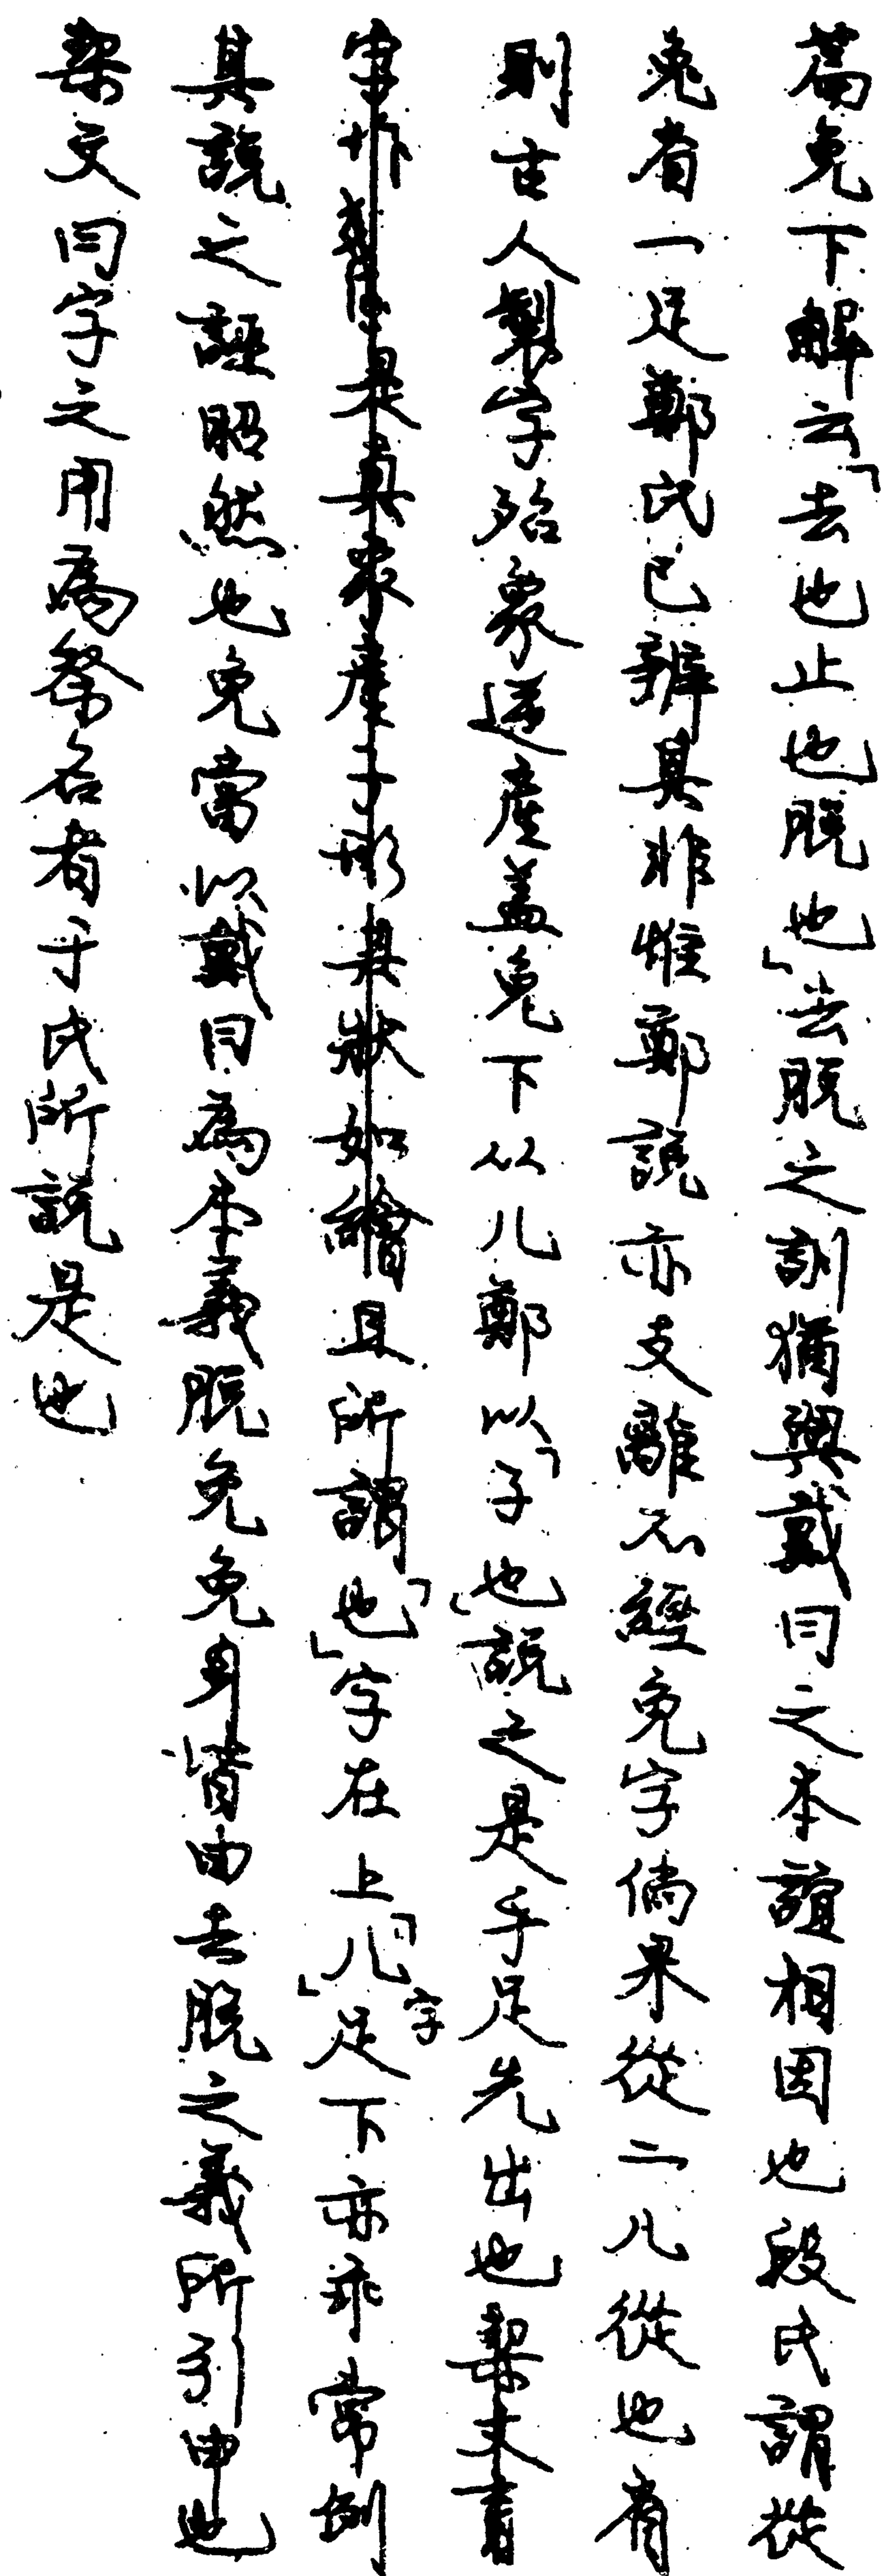 篇免下解云「去也止也脱也」去脱之訓猶與戴冃之本誼相因也段氏謂從
兔省一足鄭氏已辨其非惟鄭說亦支離不經免字倘果從二儿從也省
則古人製字殆象逆產蓋免下从儿鄭以「子也」說之是手足先出也契文育
字作是真象產子形其狀如繪且所謂「也」字在上「儿」字足下亦乖常例
其說之誣昭然也免當以戴冃為本義脱免免身皆由去脱之義所引申也
契文冃字之用為祭名者于氏所説是也